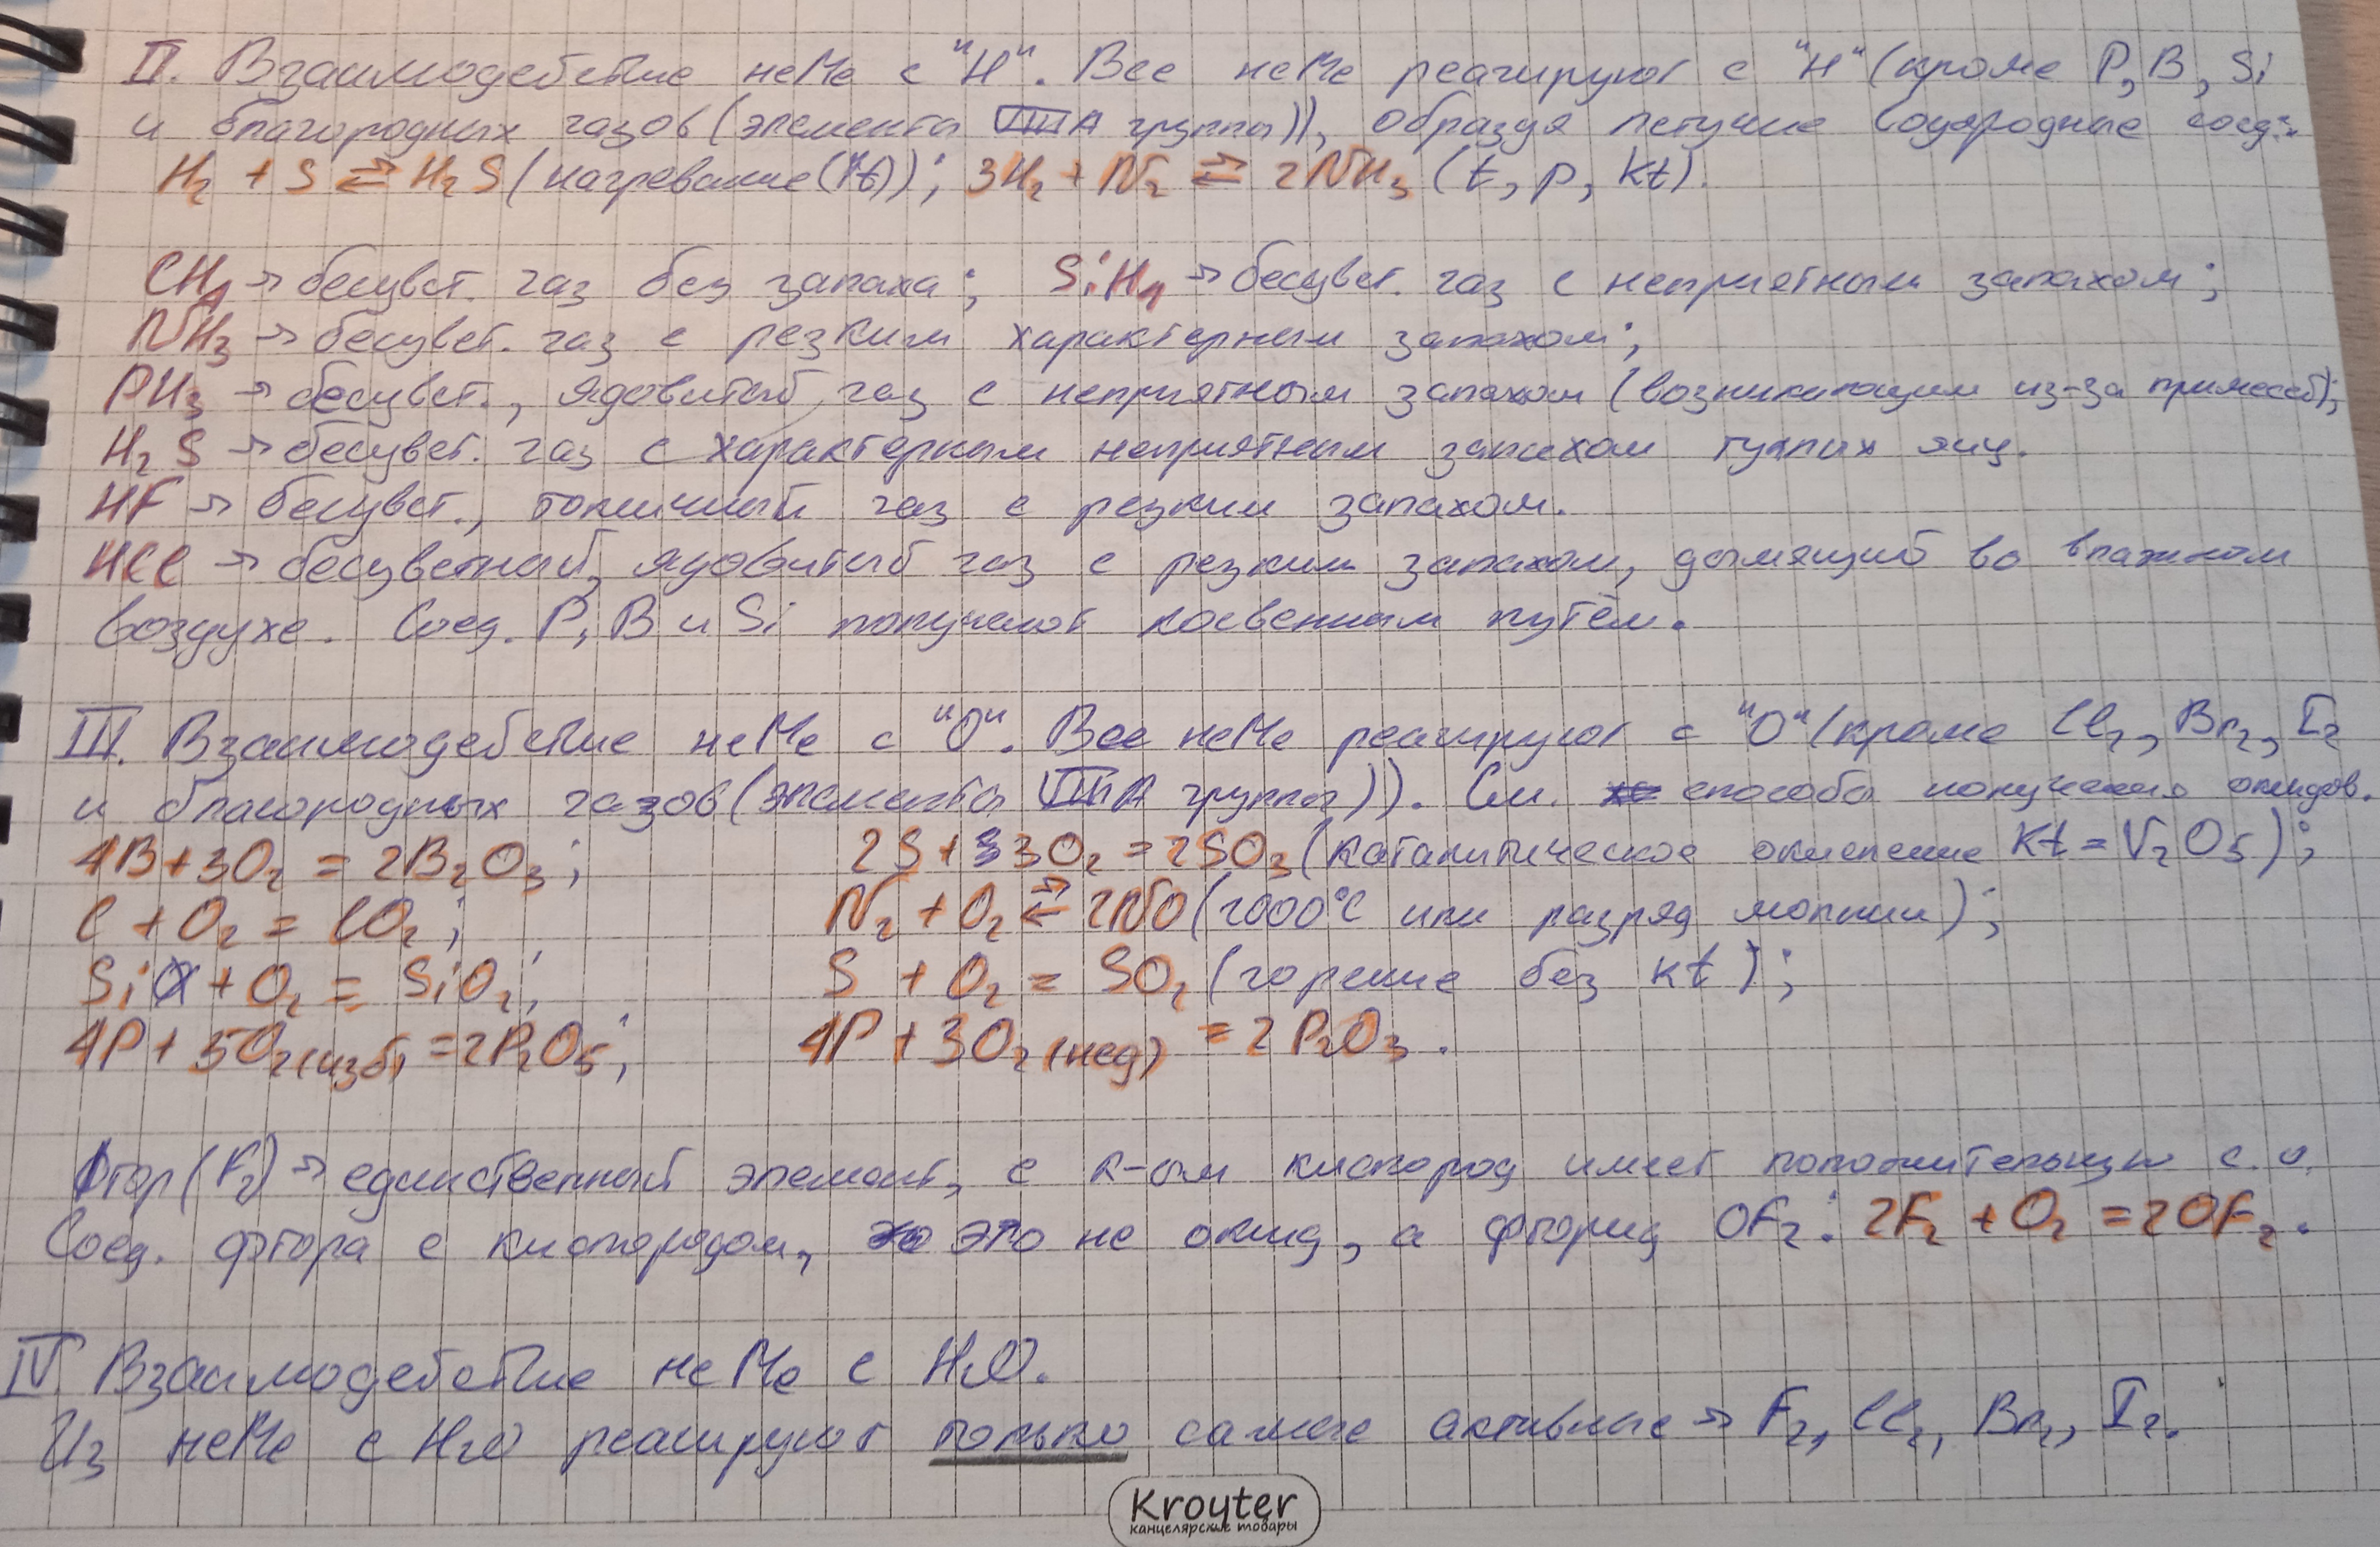 II. Взаимодействие неМе с "H". Все неМе реагируют с "H" (кроме P, B, Si
и благородных газов (элементы VIIIA группы)), образуя летучие водородные соед.:
H₂ + S ⇄ H₂S (нагревание (t)); 3H₂ + N₂ ⇄ 2NH₃ (t, p, kt).
CH₄ → бесцвет. газ без запаха; SiH₄ → бесцвет. газ с неприятным запахом;
NH₃ → бесцвет. газ с резким характерным запахом;
PH₃ → бесцвет., ядовитый газ с неприятным запахом (возникающим из-за примесей);
H₂S → бесцвет. газ с характерным неприятным запахом тухлых яиц.
HF → бесцвет., токсичный газ с резким запахом.
HCl → бесцветный, ядовитый газ с резким запахом, дымящий во влажном
воздухе. Соед. P, B и Si получают косвенным путём.
III. Взаимодействие неМе с "O". Все неМе реагируют с "O" (кроме Cl₂, Br₂, I₂
и благородных газов (элементы VIIIA группы)). См. способы получения оксидов.
4B + 3O₂ = 2B₂O₃; 2S + 3O₂ = 2SO₃ (каталитическое окисление kt = V₂O₅);
C + O₂ = CO₂; N₂ + O₂ ⇄ 2NO (2000°C или разряд молнии);
Si + O₂ = SiO₂; S + O₂ = SO₂ (горение без kt);
4P + 5O₂(изб) = 2P₂O₅; 4P + 3O₂(нед) = 2P₂O₃.
Фтор (F₂) → единственный элемент, с к-ым кислород имеет положительную с.о.
Соед. фтора с кислородом, это не оксид, а фторид OF₂: 2F₂ + O₂ = 2OF₂.
IV. Взаимодействие неМе с H₂O.
Из неМе с H₂O реагируют только самые активные → F₂, Cl₂, Br₂, I₂.
Kroyter
канцелярские товары